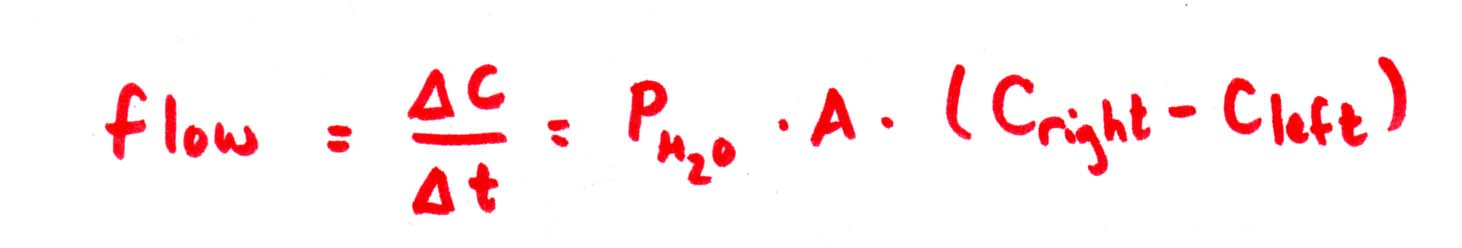 flow = ΔC/Δt = P_H₂O · A · (C_right - C_left)